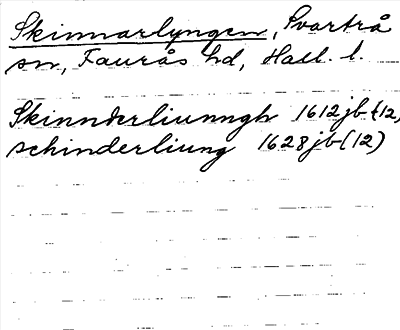 Skinnarlyngen, Svartrå
sn, Faurås hd, Hall. l.
Skinnderliunngh 1612 jb (12,
schinderliung 1628 jb (12)